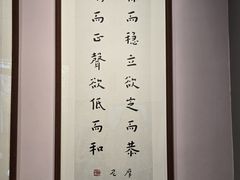 而穩立欲定而恭
而正聲欲低而和